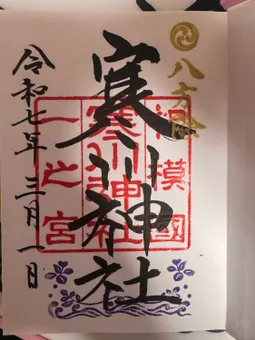 八方除
寒川神社
相模國
寒川神社
一之宮
令和七年 三月一日